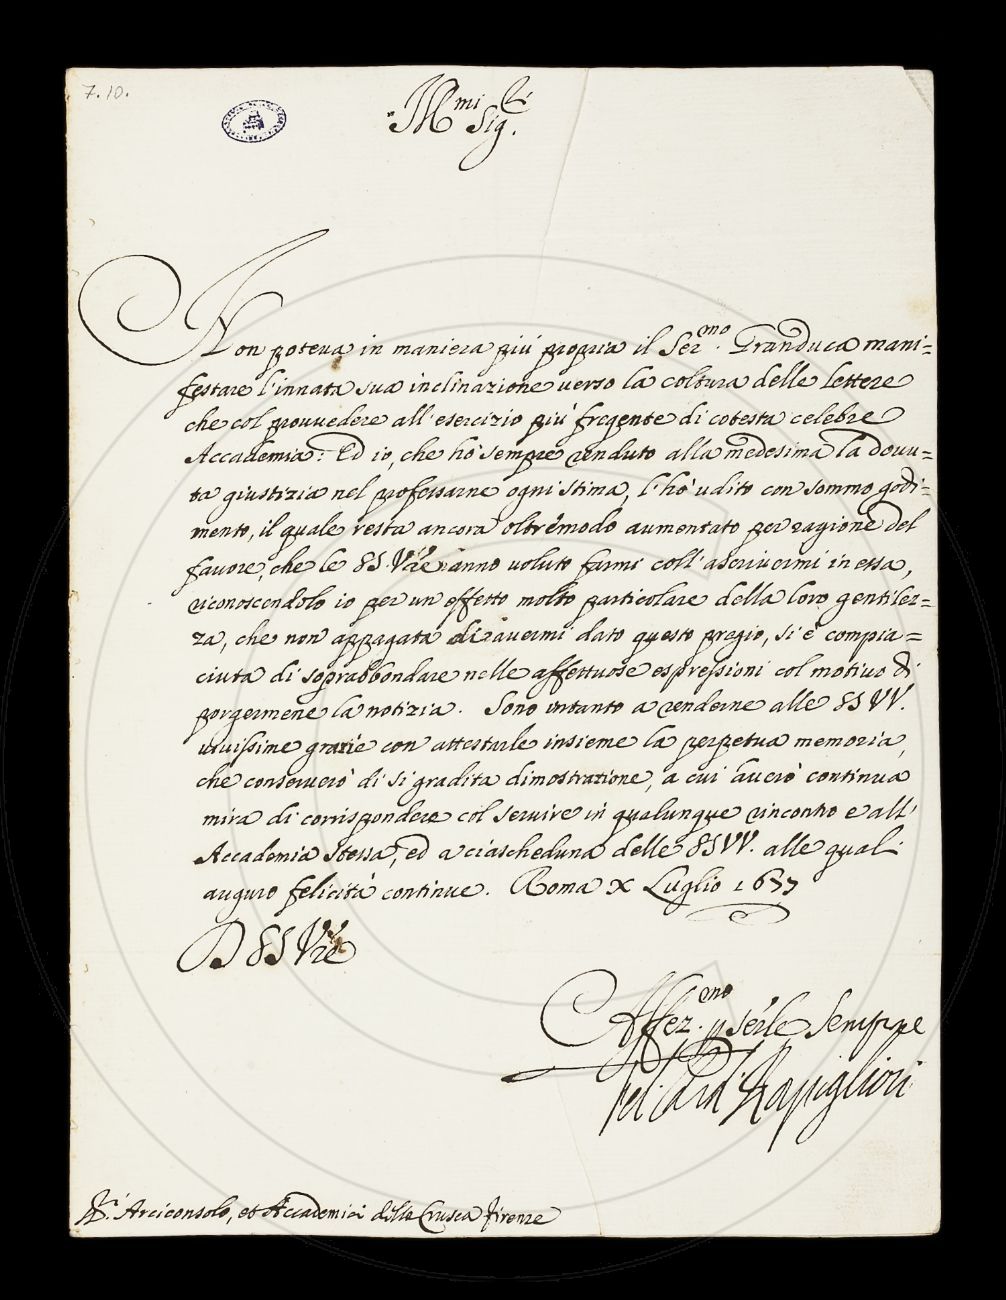 7.10.
Ill.mi Sig.ri
Non poteva in maniera più propria il Ser.mo Granduca mani=
festare l'innata sua inclinazione verso la coltura delle lettere
che col provvedere all'esercizio più freqente di cotesta celebre
Accademia: Ed io, che hò sempre renduto alla medesima la dovu=
ta giustizia nel professarne ogni stima, l'hò udito con sommo godi=
mento, il quale resta ancora oltremodo aumentato per ragione del
favore, che le SS. Vre' anno voluto farmi coll'ascrivermi in essa,
riconoscendolo io per un'effetto molto particolare della loro gentilez=
za, che non appagata di avermi dato questo pregio, si è compia=
ciuta di soprabbondare nelle affettuose espressioni col motivo di
porgermene la notizia. Sono intanto a renderne alle SS VV.
vivissime grazie con attestarle insieme la perpetua memoria,
che conserverò di si gradita dimostrazione, a cui averò continua
mira di corrispondere col servire in qualunque rincontro e all'
Accademia stessa, ed a ciascheduna delle SS VV. alle quali
auguro felicità continue. Roma X Luglio 1677
D SS Vre
Affez.mo p serle sempre
Fel: Card: Rospigliosi
SS.i Arciconsolo, et Accademici della Crusca Firenze